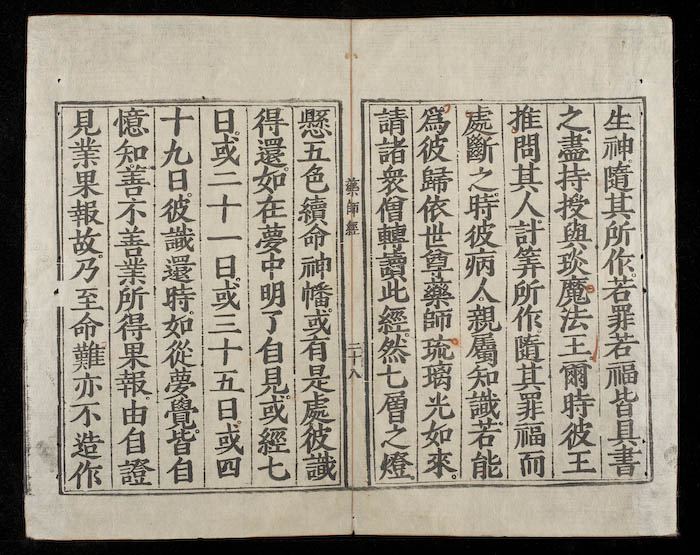 生神。隨其所作。若罪若福皆具書
之。盡持授與琰魔法王。爾時彼王
推問其人。計筭所作。隨其罪福而
處斷之。時彼病人。親屬知識若能
爲彼歸依世尊藥師琉璃光如來。
請諸衆僧轉讀此經。然七層之燈。
藥師經
二十八
懸五色續命神幡。或有是處彼識
得還。如在夢中明了自見。或經七
日。或二十一日。或三十五日。或四
十九日。彼識還時。如從夢覺。皆自
憶知。善不善業所得果報。由自證
見業果報故。乃至命難亦不造作